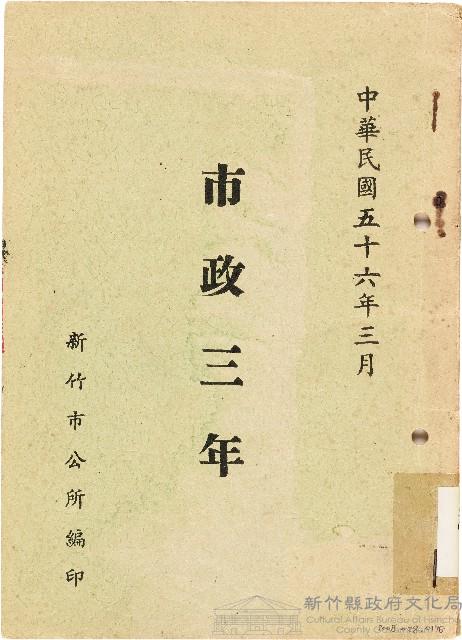 中華民國五十六年三月
市政三年
新竹市公所編印
新竹縣政府文化局
Cultural Affairs Bureau of Hsinchu
County Go